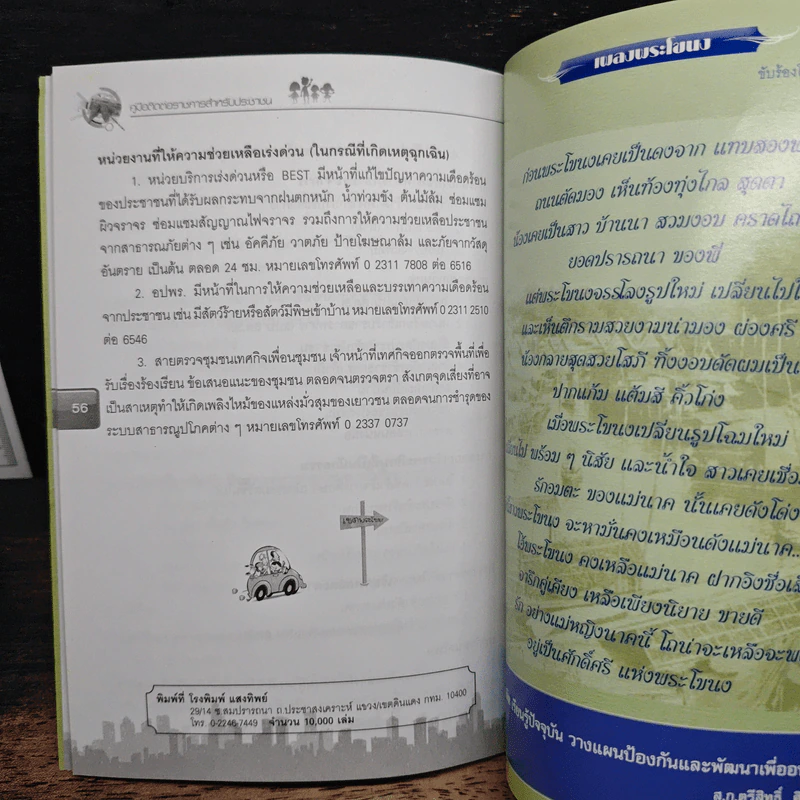 คู่มือติดต่อราชการสำหรับประชาชน
หน่วยงานที่ให้ความช่วยเหลือเร่งด่วน (ในกรณีที่เกิดเหตุฉุกเฉิน)
1. หน่วยบริการเร่งด่วนหรือ BEST มีหน้าที่แก้ไขปัญหาความเดือดร้อน
ของประชาชนที่ได้รับผลกระทบจากฝนตกหนัก น้ำท่วมขัง ต้นไม้ล้ม ซ่อมแซม
ผิวจราจร ซ่อมแซมสัญญาณไฟจราจร รวมถึงการให้ความช่วยเหลือประชาชน
จากสาธารณภัยต่าง ๆ เช่น อัคคีภัย วาตภัย ป้ายโฆษณาล้ม และภัยจากวัตถุ
อันตราย เป็นต้น ตลอด 24 ชม. หมายเลขโทรศัพท์ 0 2311 7808 ต่อ 6516
2. อปพร. มีหน้าที่ในการให้ความช่วยเหลือและบรรเทาความเดือดร้อน
จากประชาชน เช่น มีสัตว์ร้ายหรือสัตว์มีพิษเข้าบ้าน หมายเลขโทรศัพท์ 0 2311 2510
ต่อ 6546
3. สายตรวจชุมชนเทศกิจเพื่อนชุมชน เจ้าหน้าที่เทศกิจออกตรวจพื้นที่เพื่อ
รับเรื่องร้องเรียน ข้อเสนอแนะของชุมชน ตลอดจนตรวจตรา สังเกตจุดเสี่ยงที่อาจ
เป็นสาเหตุทำให้เกิดเพลิงไหม้ของแหล่งมั่วสุมของเยาวชน ตลอดจนการชำรุดของ
ระบบสาธารณูปโภคต่าง ๆ หมายเลขโทรศัพท์ 0 2337 0737
56
พิมพ์ที่ โรงพิมพ์ แสงทิพย์
29/14 ซ.สมปรารถนา ถ.ประชาสงเคราะห์ แขวง/เขตดินแดง กทม. 10400
โทร. 0-2246-7449 จำนวน 10,000 เล่ม
เพลงพระโขนง
ขับร้อง
ก่อนพระโขนงเคยเป็นดงจาก แทบสอง
ถนนตัดมอง เห็นท้องทุ่งไกล สุดตา
น้องเคยเป็นสาว บ้านนา สวมงอบ คราดไถ
ยอดปรารถนา ของพี่
แต่พระโขนงจรรโลงรูปใหม่ เปลี่ยนไป
และเห็นตึกรามสวยงามน่ามอง ผ่องศรี
น้องกลายสุดสวยโสภี ทิ้งงอบดัดผมเป็น
ปากแก้ม แต้มสี คิ้วโก่ง
เมื่อพระโขนงเปลี่ยนรูปโฉมใหม่
พร้อม ๆ นิสัย และน้ำใจ สาวเคย
รักอมตะ ของแม่นาค นั้นเคยดังโด่ง
พระโขนง จะหามั่นคงเหมือนดังแม่นาค...
พระโขนง คงเหลือแม่นาค ฝากอิงชื่อ
จารึกคู่เคียง เหลือเพียงนิยาย ขายดี
รัก อย่างแม่หญิงนาคนี้ โถน่าจะเหลือ
อยู่เป็นศักดิ์ศรี แห่งพระโขนง
เรียนรู้ปัจจุบัน วางแผนป้องกันและพัฒนาเพื่อ
ส.ก.ตรีสิทธิ์